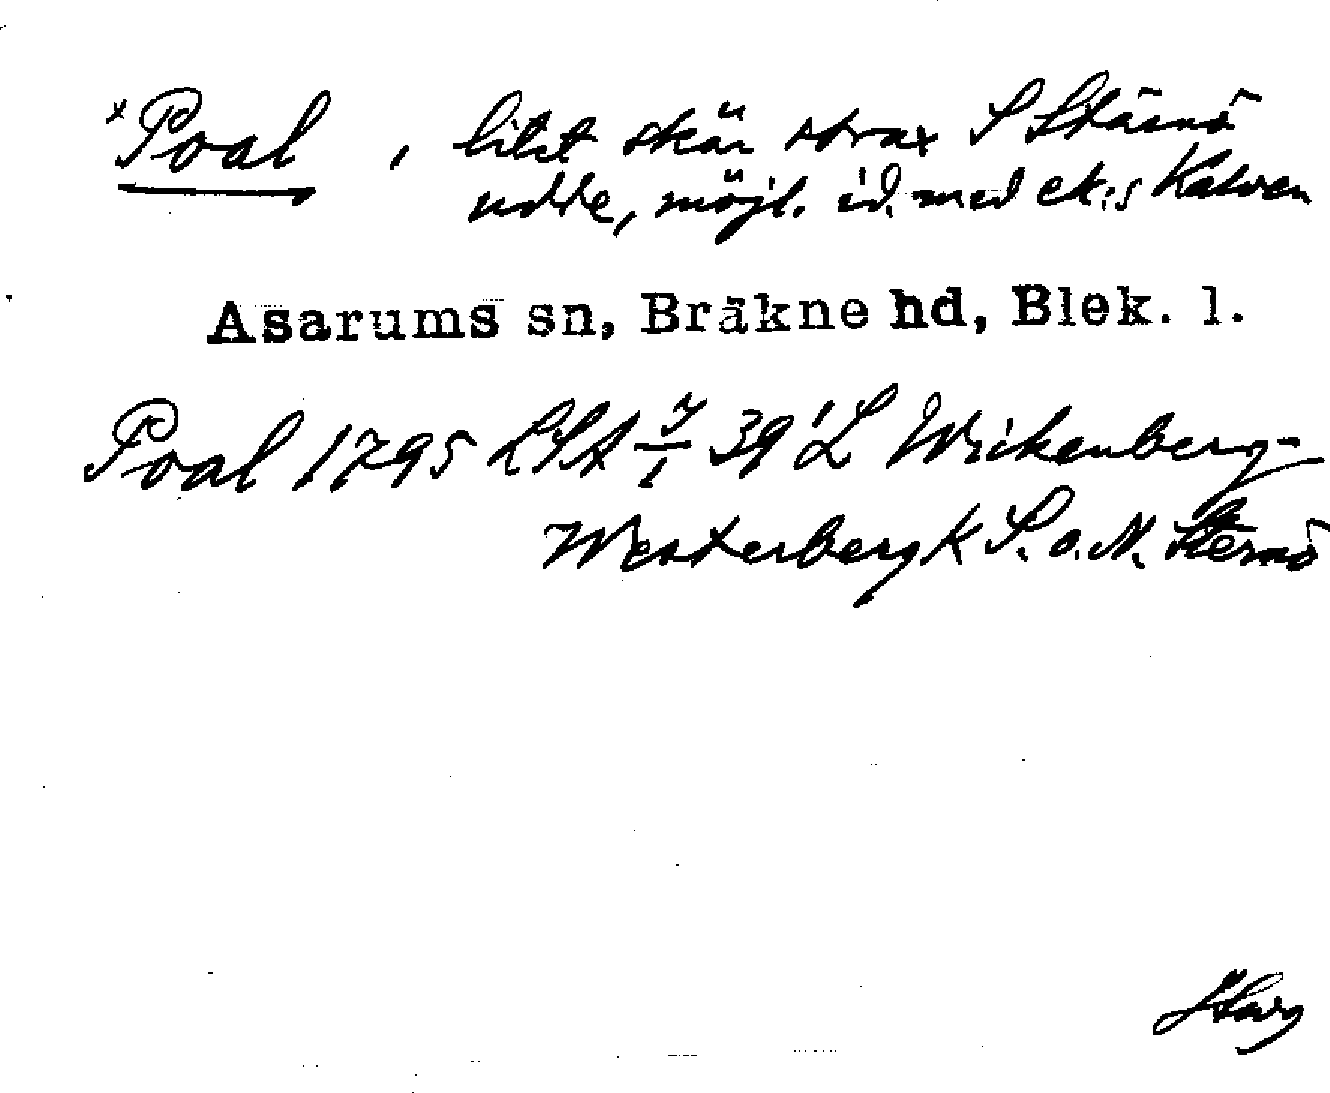 *Poal , litet skär strax S Stärnö
udde, möjl. id. med ek:s Kalven
Asarums sn, Bräkne hd, Blek. l.
Poal 1795 LSA 7/1 39 L Wikenberg-
Westerberg K S. o. N. Sternö